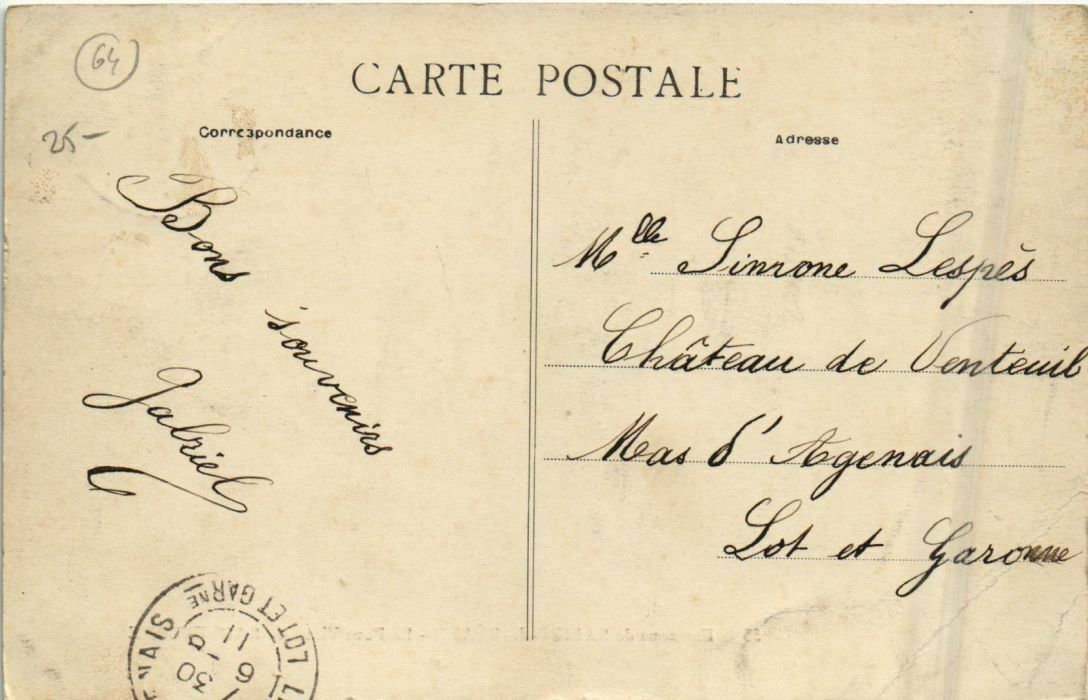 64
CARTE POSTALE
25-
Correspondance
Adresse
Bons souvenirs
Gabriel
Mlle Simone Lespès
Château de Venteuil
Mas d'Agenais
Lot et Garonne
LOT ET GARNE